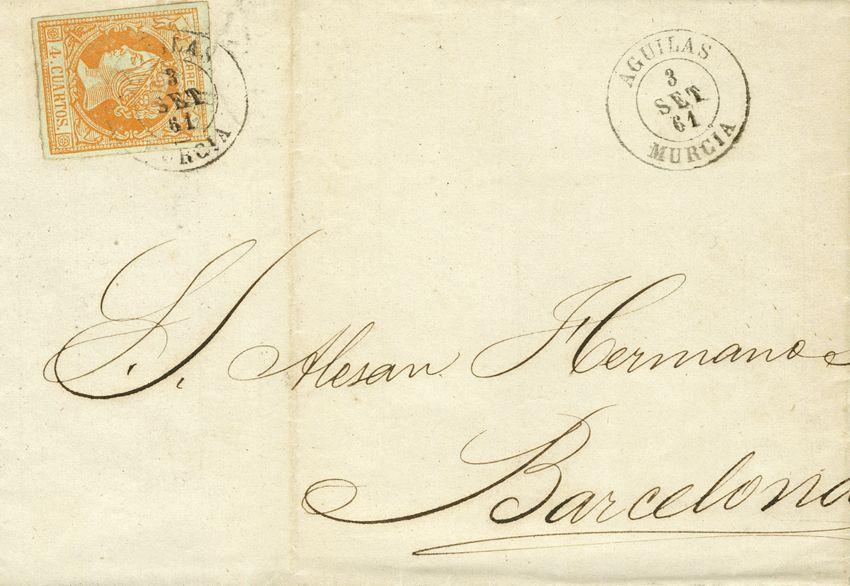 4. CUARTOS.
LAS
3
SET
61
RCIA
AGUILAS
3
SET
61
MURCIA
S. S. Alesan Hermano
Barcelona